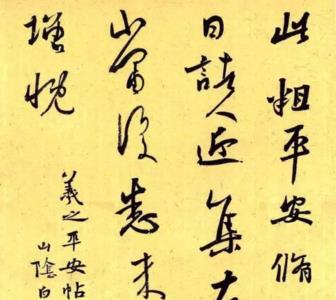 此粗平安脩
日諸人近集存
當復悉来
增慨
羲之平安帖
山陰白